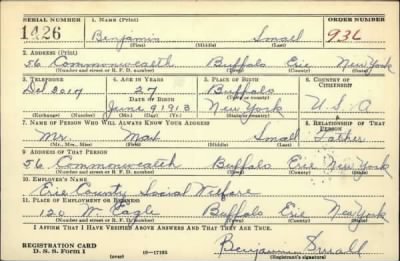 SERIAL NUMBER 1. NAME (Print) ORDER NUMBER
1426 Benjamin Small 936
(First) (Middle) (Last)
2. ADDRESS (Print)
56 Commonwealth Buffalo Erie New York
(Number and street or R. F. D. number) (Town) (County) (State)
3. TELEPHONE 4. AGE IN YEARS 5. PLACE OF BIRTH 6. COUNTRY OF CITIZENSHIP
Del 2017 27 Buffalo
DATE OF BIRTH (Town or county)
June 9 1913 New York U.S.A
(Exchange) (Number) (Mo.) (Day) (Yr.) (State or country)
7. NAME OF PERSON WHO WILL ALWAYS KNOW YOUR ADDRESS 8. RELATIONSHIP OF THAT PERSON
Mr. Max Small Father
(Mr., Mrs., Miss) (First) (Middle) (Last)
9. ADDRESS OF THAT PERSON
56 Commonwealth Buffalo Erie New York
(Number and street or R. F. D. number) (Town) (County) (State)
10. EMPLOYER'S NAME
Erie County Social Welfare
11. PLACE OF EMPLOYMENT OR BUSINESS
120 W. Eagle Buffalo Erie New York
(Number and street or R. F. D. number) (Town) (County) (State)
I AFFIRM THAT I HAVE VERIFIED ABOVE ANSWERS AND THAT THEY ARE TRUE.
REGISTRATION CARD
D. S. S. Form 1 (over) 16—17105 Benjamin Small
(Registrant's signature)